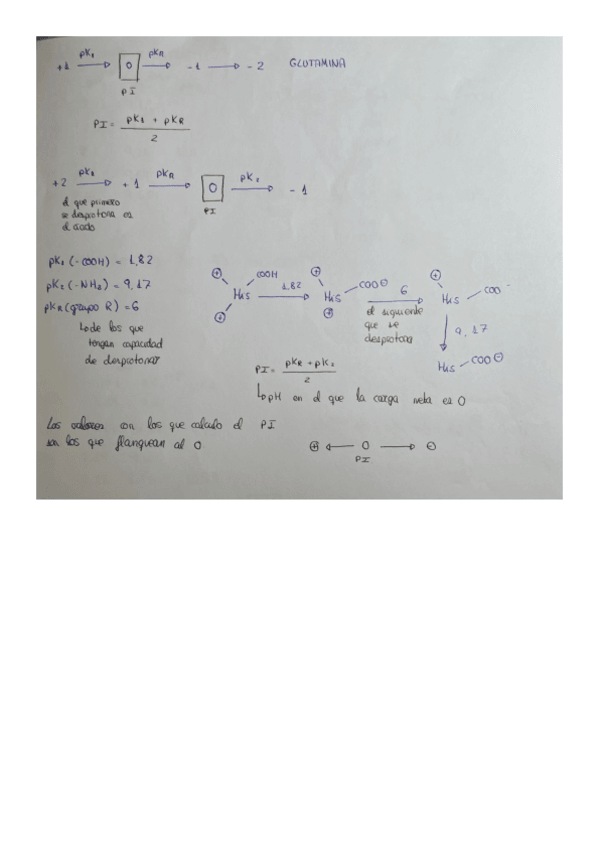 +1 pK₁ → 0 pKR → -1 → -2 GLUTAMINA
PI
PI = pK₁ + pKR
2
+2 pK₁ → +1 pKR → 0 pK₂ → -1
el que primero
se desprotona es
el ácido
PI
pK₁ (-COOH) = 1,82
pK₂ (-NH₃) = 9,17
pKR (grupo R) = 6
↳ de los que
tengan capacidad
de desprotonar
⊕ COOH
His 1,82 →
⊕
⊕ COO⊖
His 6 →
⊕
el siguiente
que se
desprotona
⊕
His COO⁻
↓ 9,17
His COO⊖
PI = pKR + pK₂
2
↳ pH en el que la carga neta es 0
Los valores con los que calculo el PI
son los que flanquean al 0.
⊕ ← 0 → ⊖
PI